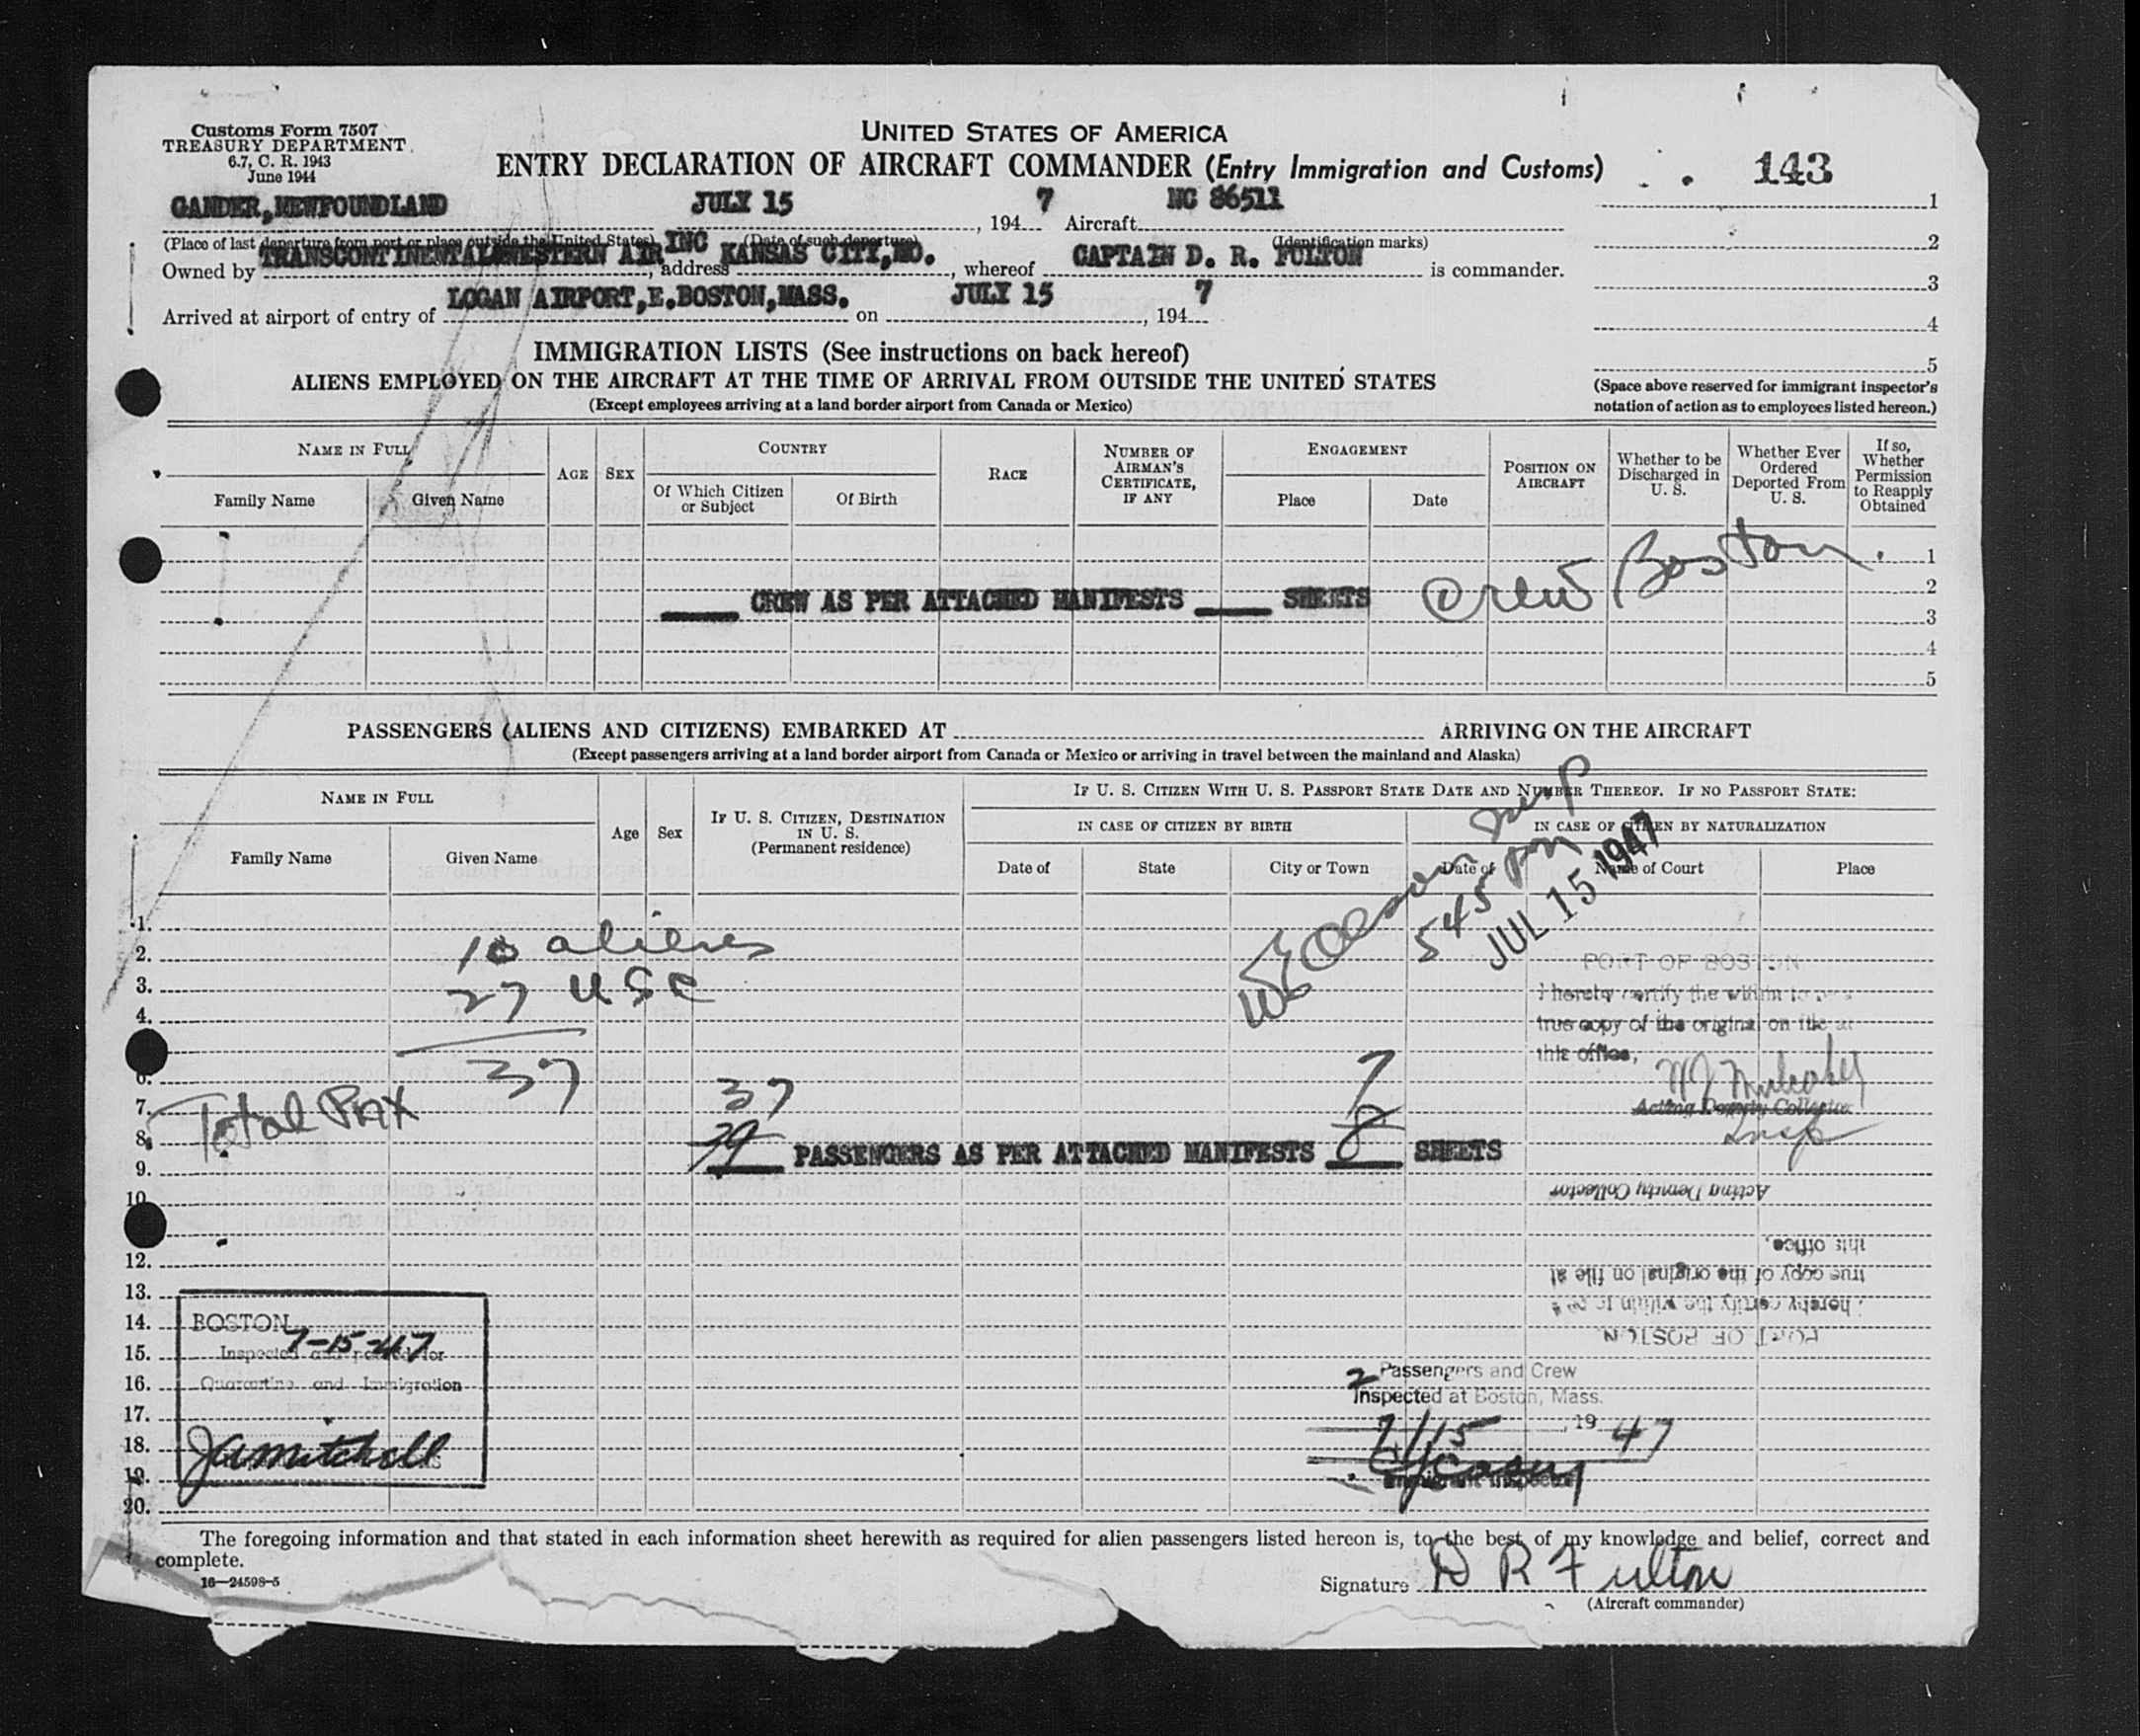 Customs Form 7507
TREASURY DEPARTMENT
6.7, C. R. 1943
June 1944
UNITED STATES OF AMERICA
ENTRY DECLARATION OF AIRCRAFT COMMANDER (Entry Immigration and Customs)
143
GANDER, NEWFOUNDLAND JULY 15, 1947 Aircraft NC 86511
(Place of last departure from port or place outside the United States) (Date of such departure) (Identification marks)
Owned by TRANSCONTINENTAL&WESTERN AIR INC, address KANSAS CITY,MO., whereof CAPTAIN D. R. FULTON is commander.
Arrived at airport of entry of LOGAN AIRPORT,E.BOSTON,MASS. on JULY 15, 1947
1
2
3
4
5
(Space above reserved for immigrant inspector's
notation of action as to employees listed hereon.)
IMMIGRATION LISTS (See instructions on back hereof)
ALIENS EMPLOYED ON THE AIRCRAFT AT THE TIME OF ARRIVAL FROM OUTSIDE THE UNITED STATES
(Except employees arriving at a land border airport from Canada or Mexico)
NAME IN FULL
Family Name
Given Name
AGE
SEX
COUNTRY
Of Which Citizen or Subject
Of Birth
RACE
NUMBER OF AIRMAN'S CERTIFICATE, IF ANY
ENGAGEMENT
Place
Date
POSITION ON AIRCRAFT
Whether to be Discharged in U. S.
Whether Ever Ordered Deported From U. S.
If so, Whether Permission to Reapply Obtained
1
2
3
4
5
CREW AS PER ATTACHED MANIFESTS SHEETS
Crew Boston.
PASSENGERS (ALIENS AND CITIZENS) EMBARKED AT ARRIVING ON THE AIRCRAFT
(Except passengers arriving at a land border airport from Canada or Mexico or arriving in travel between the mainland and Alaska)
NAME IN FULL
Family Name
Given Name
Age
Sex
IF U. S. CITIZEN, DESTINATION IN U. S. (Permanent residence)
IF U. S. CITIZEN WITH U. S. PASSPORT STATE DATE AND NUMBER THEREOF. IF NO PASSPORT STATE:
IN CASE OF CITIZEN BY BIRTH
Date of
State
City or Town
IN CASE OF CITIZEN BY NATURALIZATION
Date of
Name of Court
Place
Insp
545 pm
JUL 15 1947
1.
2.
3.
4.
6.
7.
8.
9.
10.
12.
13.
14.
15.
16.
17.
18.
19.
20.
10 aliens
27 USC
37
Total Pax
37 7
39 PASSENGERS AS PER ATTACHED MANIFESTS 8 SHEETS
PORT OF BOSTON
I hereby certify the within to be a
true copy of the original on file at
this office,
Acting Deputy Collector
Insp
PORT OF BOSTON
I hereby certify the within to be a
true copy of the original on file at
this office,
Acting Deputy Collector
BOSTON
7-15-47
Inspected and passed for
Quarantine and Immigration
JA Mitchell
2 Passengers and Crew
Inspected at Boston, Mass.
7/15, 1947
CJ Casey
Immigrant Inspector
The foregoing information and that stated in each information sheet herewith as required for alien passengers listed hereon is, to the best of my knowledge and belief, correct and
complete.
16—24598-5
Signature D R Fulton
(Aircraft commander)